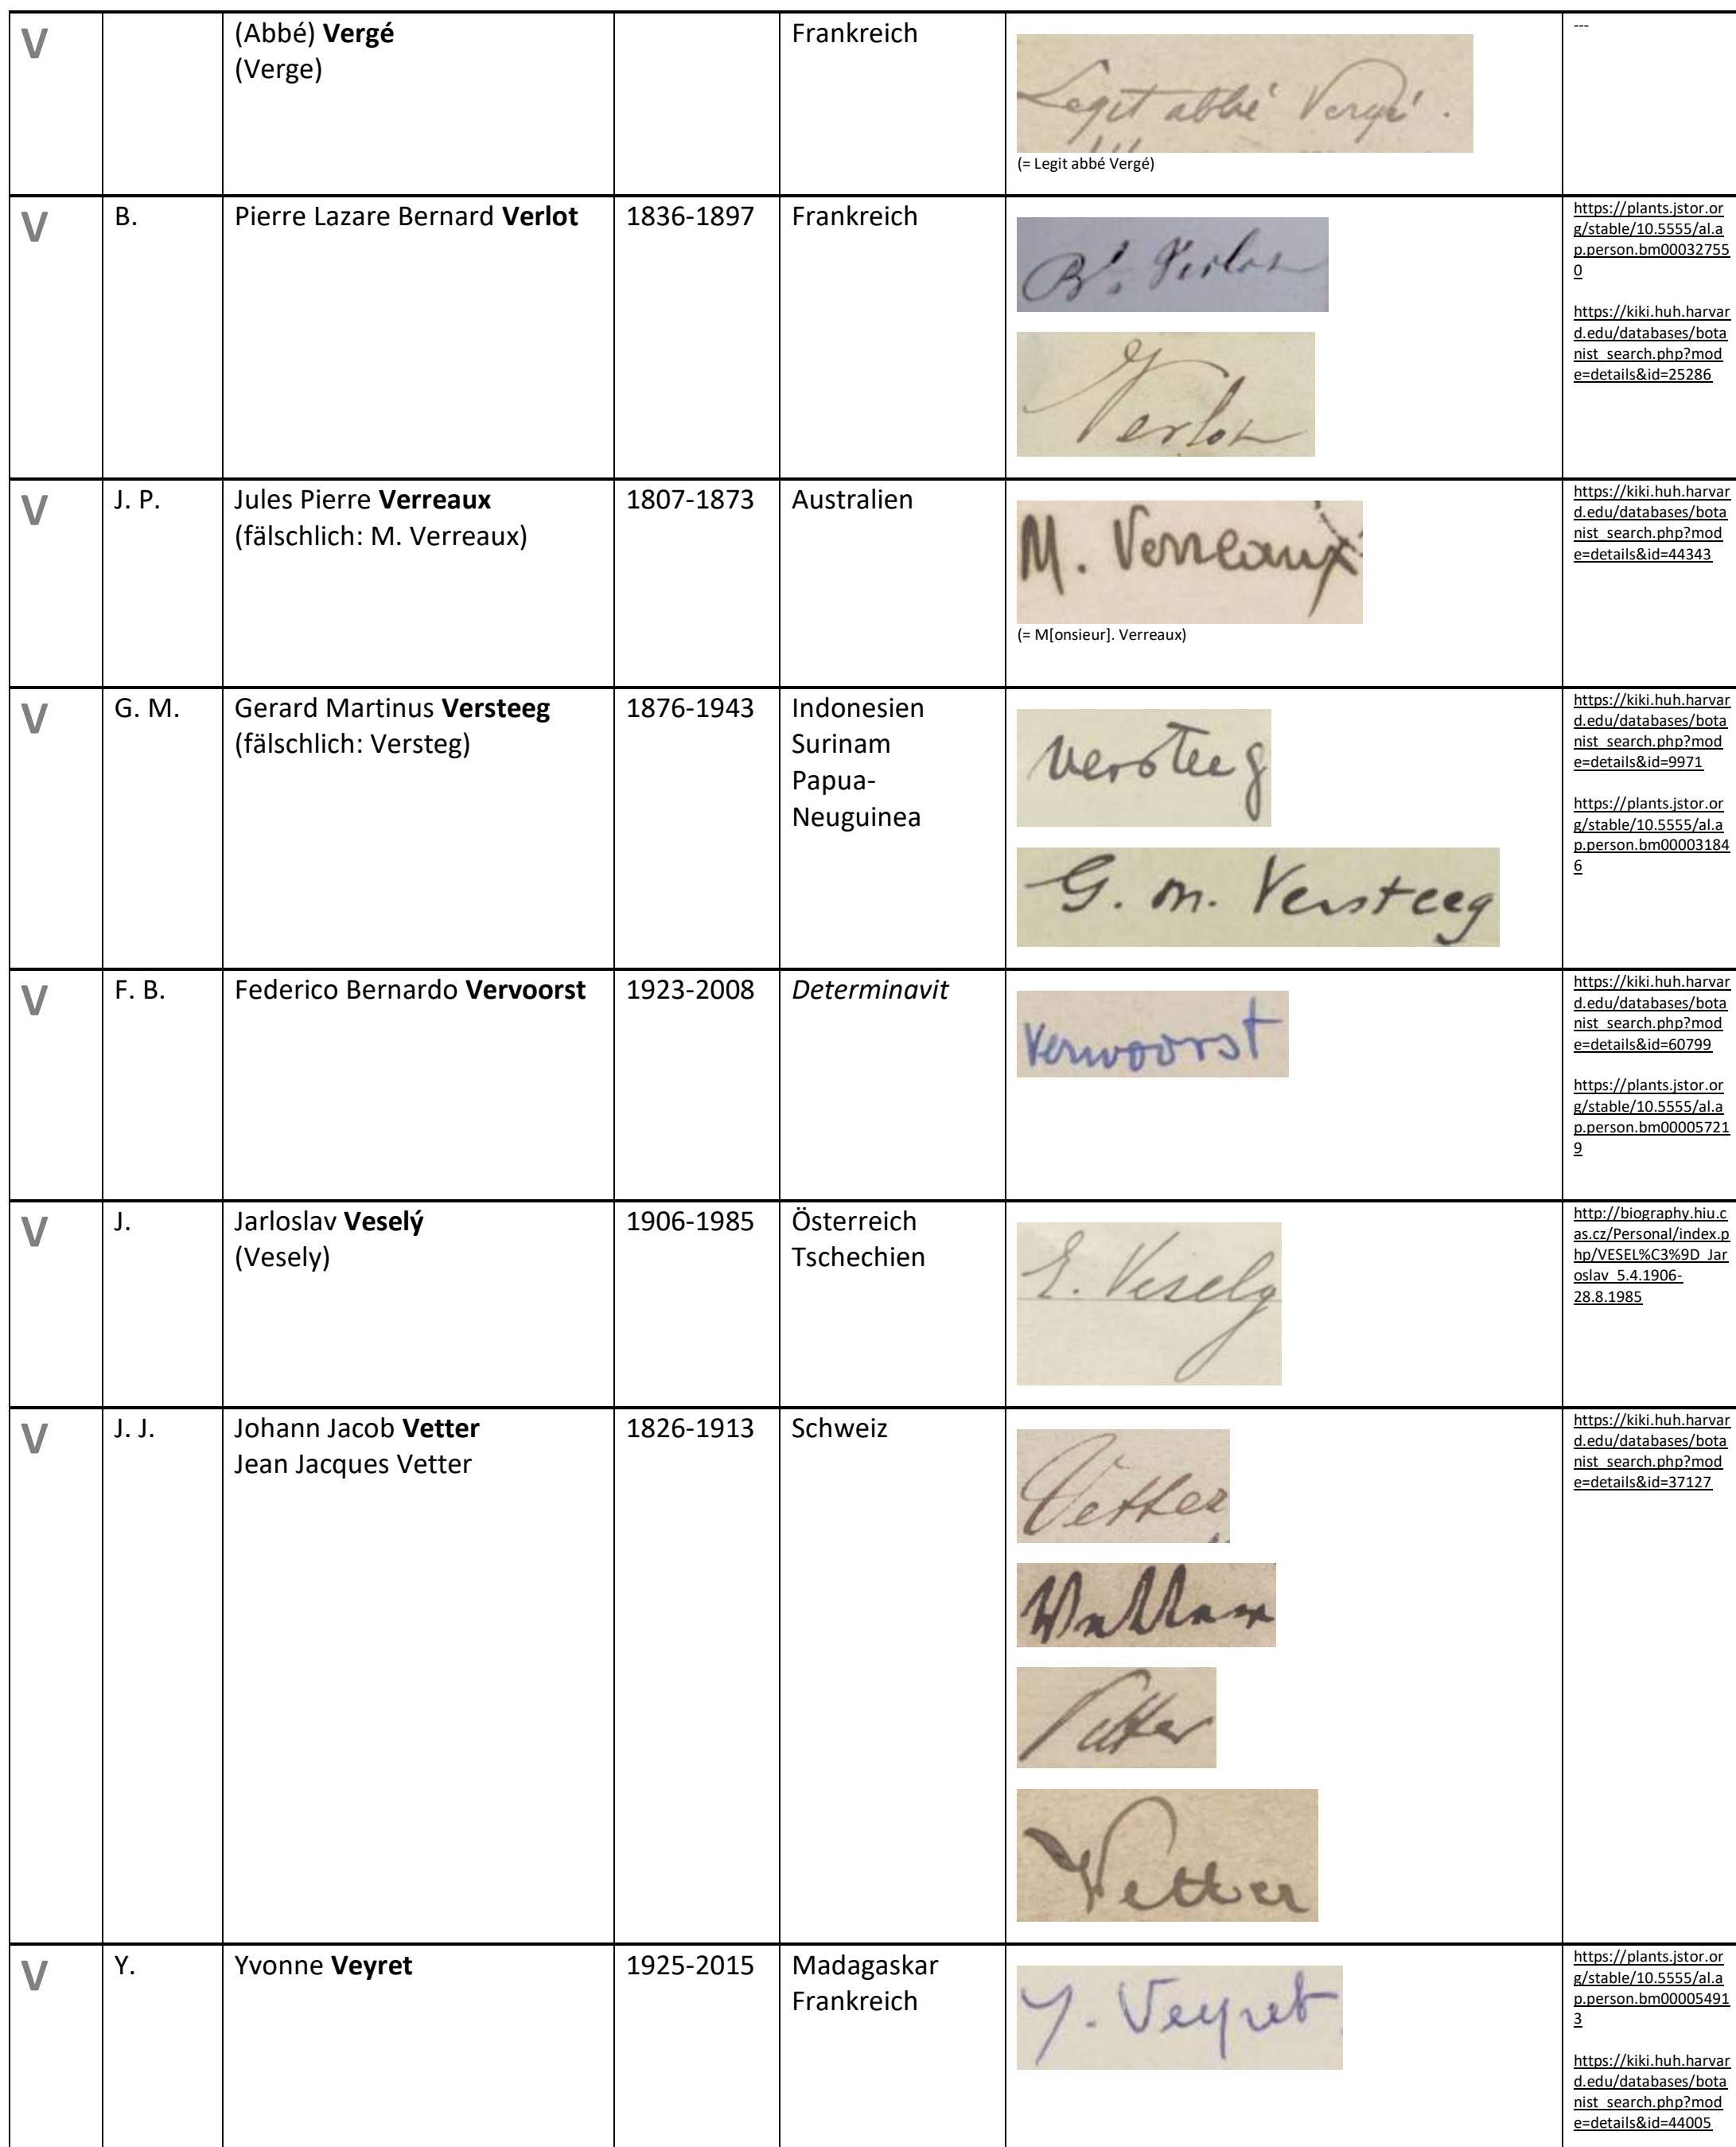 V
(Abbé) Vergé
(Verge)
Frankreich
Legit abbé Vergé.
(= Legit abbé Vergé)
---
V
B.
Pierre Lazare Bernard Verlot
1836-1897
Frankreich
Bd. Verlot
Verlot
https://plants.jstor.or
g/stable/10.5555/al.a
p.person.bm00032755
0
https://kiki.huh.harvar
d.edu/databases/bota
nist_search.php?mod
e=details&id=25286
V
J. P.
Jules Pierre Verreaux
(fälschlich: M. Verreaux)
1807-1873
Australien
M. Verreaux
(= M[onsieur]. Verreaux)
https://kiki.huh.harvar
d.edu/databases/bota
nist_search.php?mod
e=details&id=44343
V
G. M.
Gerard Martinus Versteeg
(fälschlich: Versteg)
1876-1943
Indonesien
Surinam
Papua-
Neuguinea
Versteeg
G. M. Versteeg
https://kiki.huh.harvar
d.edu/databases/bota
nist_search.php?mod
e=details&id=9971
https://plants.jstor.or
g/stable/10.5555/al.a
p.person.bm00003184
6
V
F. B.
Federico Bernardo Vervoorst
1923-2008
Determinavit
Vervoorst
https://kiki.huh.harvar
d.edu/databases/bota
nist_search.php?mod
e=details&id=60799
https://plants.jstor.or
g/stable/10.5555/al.a
p.person.bm00005721
9
V
J.
Jarloslav Veselý
(Vesely)
1906-1985
Österreich
Tschechien
Vesely
http://biography.hiu.c
as.cz/Personal/index.p
hp/VESEL%C3%9D_Jar
oslav_5.4.1906-
28.8.1985
V
J. J.
Johann Jacob Vetter
Jean Jacques Vetter
1826-1913
Schweiz
Vetter
Vetter
Vetter
Vetter
https://kiki.huh.harvar
d.edu/databases/bota
nist_search.php?mod
e=details&id=37127
V
Y.
Yvonne Veyret
1925-2015
Madagaskar
Frankreich
Y. Veyret
https://plants.jstor.or
g/stable/10.5555/al.a
p.person.bm00005491
3
https://kiki.huh.harvar
d.edu/databases/bota
nist_search.php?mod
e=details&id=44005